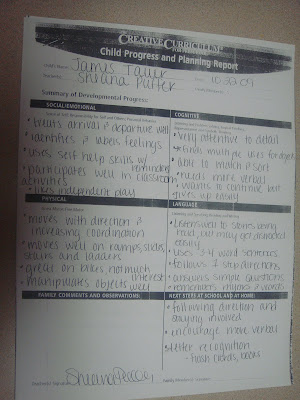 CREATIVE CURRICULUM
Child Progress and Planning Report
Child's Name: James
Teacher(s): Shirana
Date: 10-30-09
Summary of Developmental Progress:
SOCIAL/EMOTIONAL
• treats arrival & departure well
• identifies & labels feelings
• uses self help skills w/ reminding
• participates well in classroom
activities
• likes independent play
COGNITIVE
• very attentive to detail
• finds multiple uses for objects
• able to match & sort
• needs more verbal
• wants to continue but
gives up easily
PHYSICAL
• moves with direction &
increasing coordination
• moves well on ramps, slides,
stairs and ladders
• great on bikes not much
interest
• manipulates objects well
LANGUAGE
• listens well to stories being
read, but may get distracted
easily
• uses 3-4 word sentences
• follows 2 step directions
• answers simple questions
• remembers rhymes & words
FAMILY COMMENTS AND OBSERVATIONS:
NEXT STEPS AT SCHOOL AND AT HOME:
• following direction and
staying involved
• encourage more verbal
• letter recognition
- flash cards, books